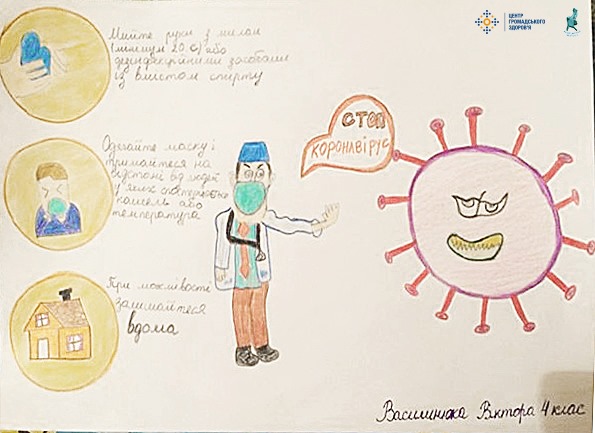 ЦЕНТР
ГРОМАДСЬКОГО
ЗДОРОВ'Я
Мийте руки з милом
(мінімум 20 с) або
дезинфекційними засобами
із вмістом спирту
Одягайте маску і
тримайтеся на
відстані від людей
у яких
кашель або
температура
СТОП
КОРОНАВІРУС
При можливості
залишайтеся
вдома
Василинюка Віктора 4 клас